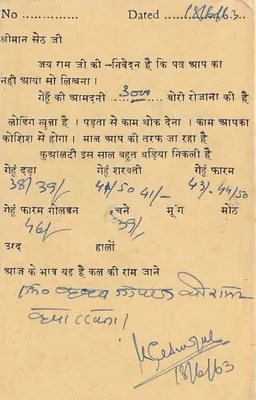 No ............... Dated 18/6/63
श्रीमान सेठ जी
जय राम जी की-निवेदन है कि पत्र आप का
नही आया सो लिखना।
गेहूँ की आमदनी 3000 बोरी रोजाना की है
लोडिंग खुला है। पड़ता से काम थोक देना। काम आपका
कोशिश से होगा। माल आप की तरफ जा रहा है
कुआलटी इस साल बहुत बढ़िया निकली है
गेहूं दड़ा गेहूं शरबती गेहूं फार्म
38/ 39/- 41/- 43/- 44/50
गेहूं फार्म गोलडन चने मूंग मोठ
46/- 39/-
उरद हालों
आज के भाव यह है कल की राम जाने
18/6/63